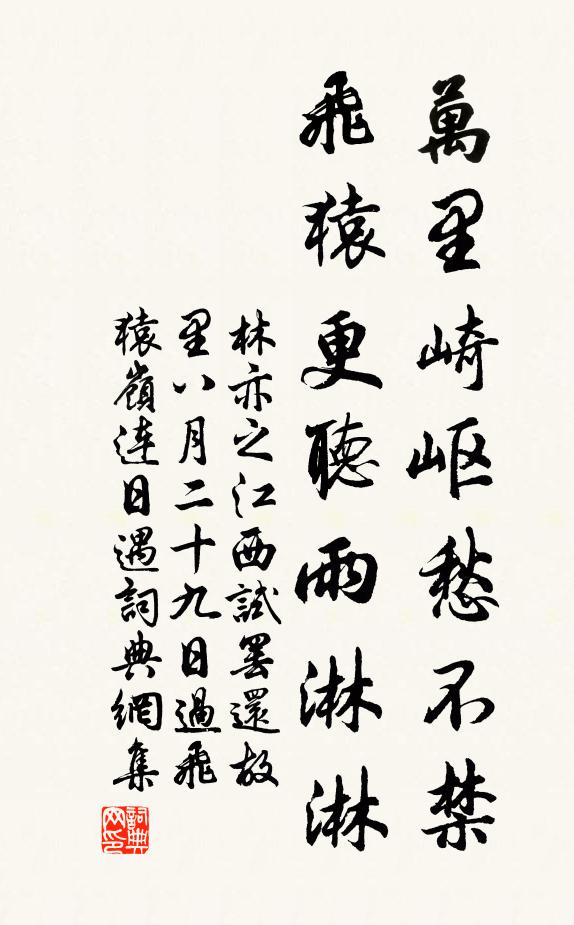 萬里崎岖愁不禁
飛猿更聽雨淋淋
林亦之江西試罢還故
里八月二十九日過飛
猿嶺連日遇詞典網集
詞典
网印